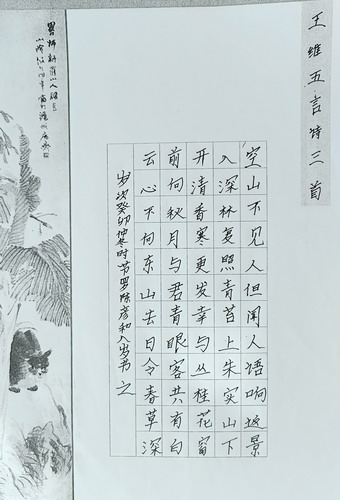 王维五言诗三首
空山不见人但闻人语响返景
入深林复照青苔上朱实山下
开清香寒更发幸与丛桂花窗
前向秋月与君青眼客共有白
云心不向东山去日令春草深
岁次癸卯仲冬时节罗陈彦和八岁书之